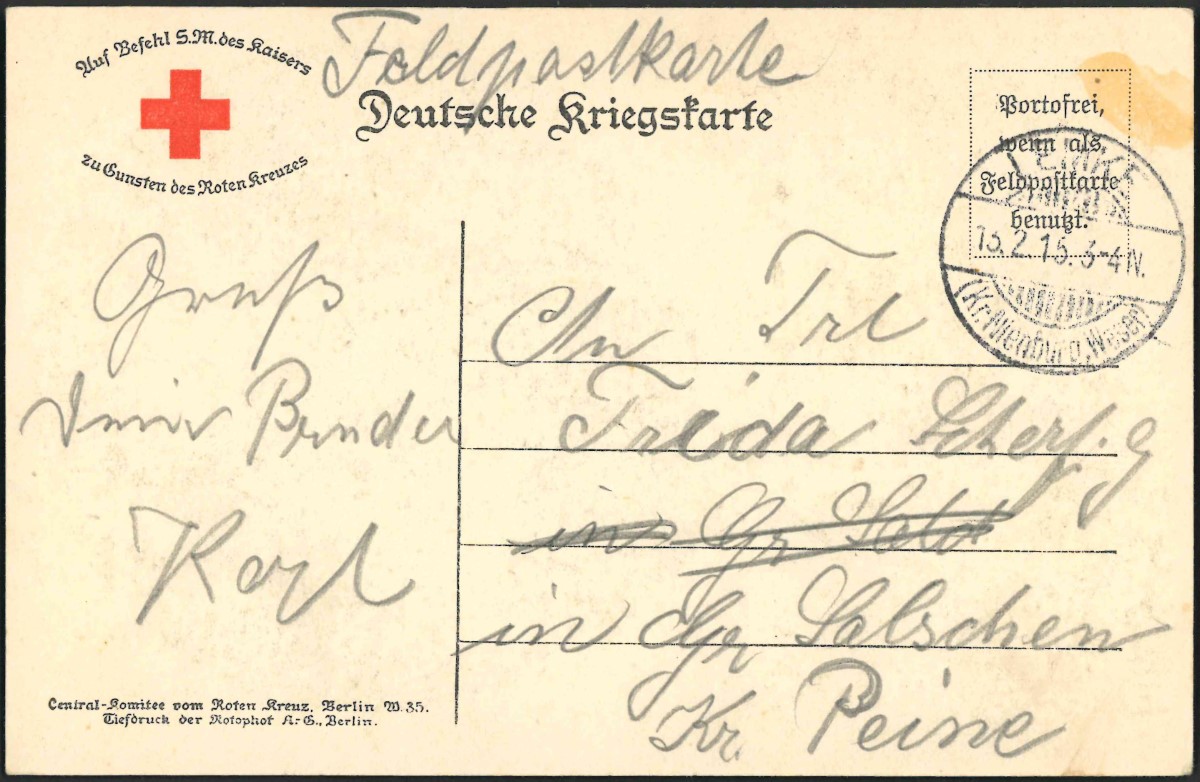 Auf Befehl S.M. des Kaisers
zu Gunsten des Roten Kreuzes
Feldpostkarte
Deutsche Kriegskarte
Portofrei,
wenn als
Feldpostkarte
benutzt.
LEMKE
13.2.15. 3-4 N.
(Kr. Nienburg, Weser)
Gruß
Dein Bruder
Karl
An Frl
Frida
in Gr
in Gr Solschen
Kr. Peine
Central-Komitee vom Roten Kreuz, Berlin W. 35.
Tiefdruck der Rotophot A.-G., Berlin.